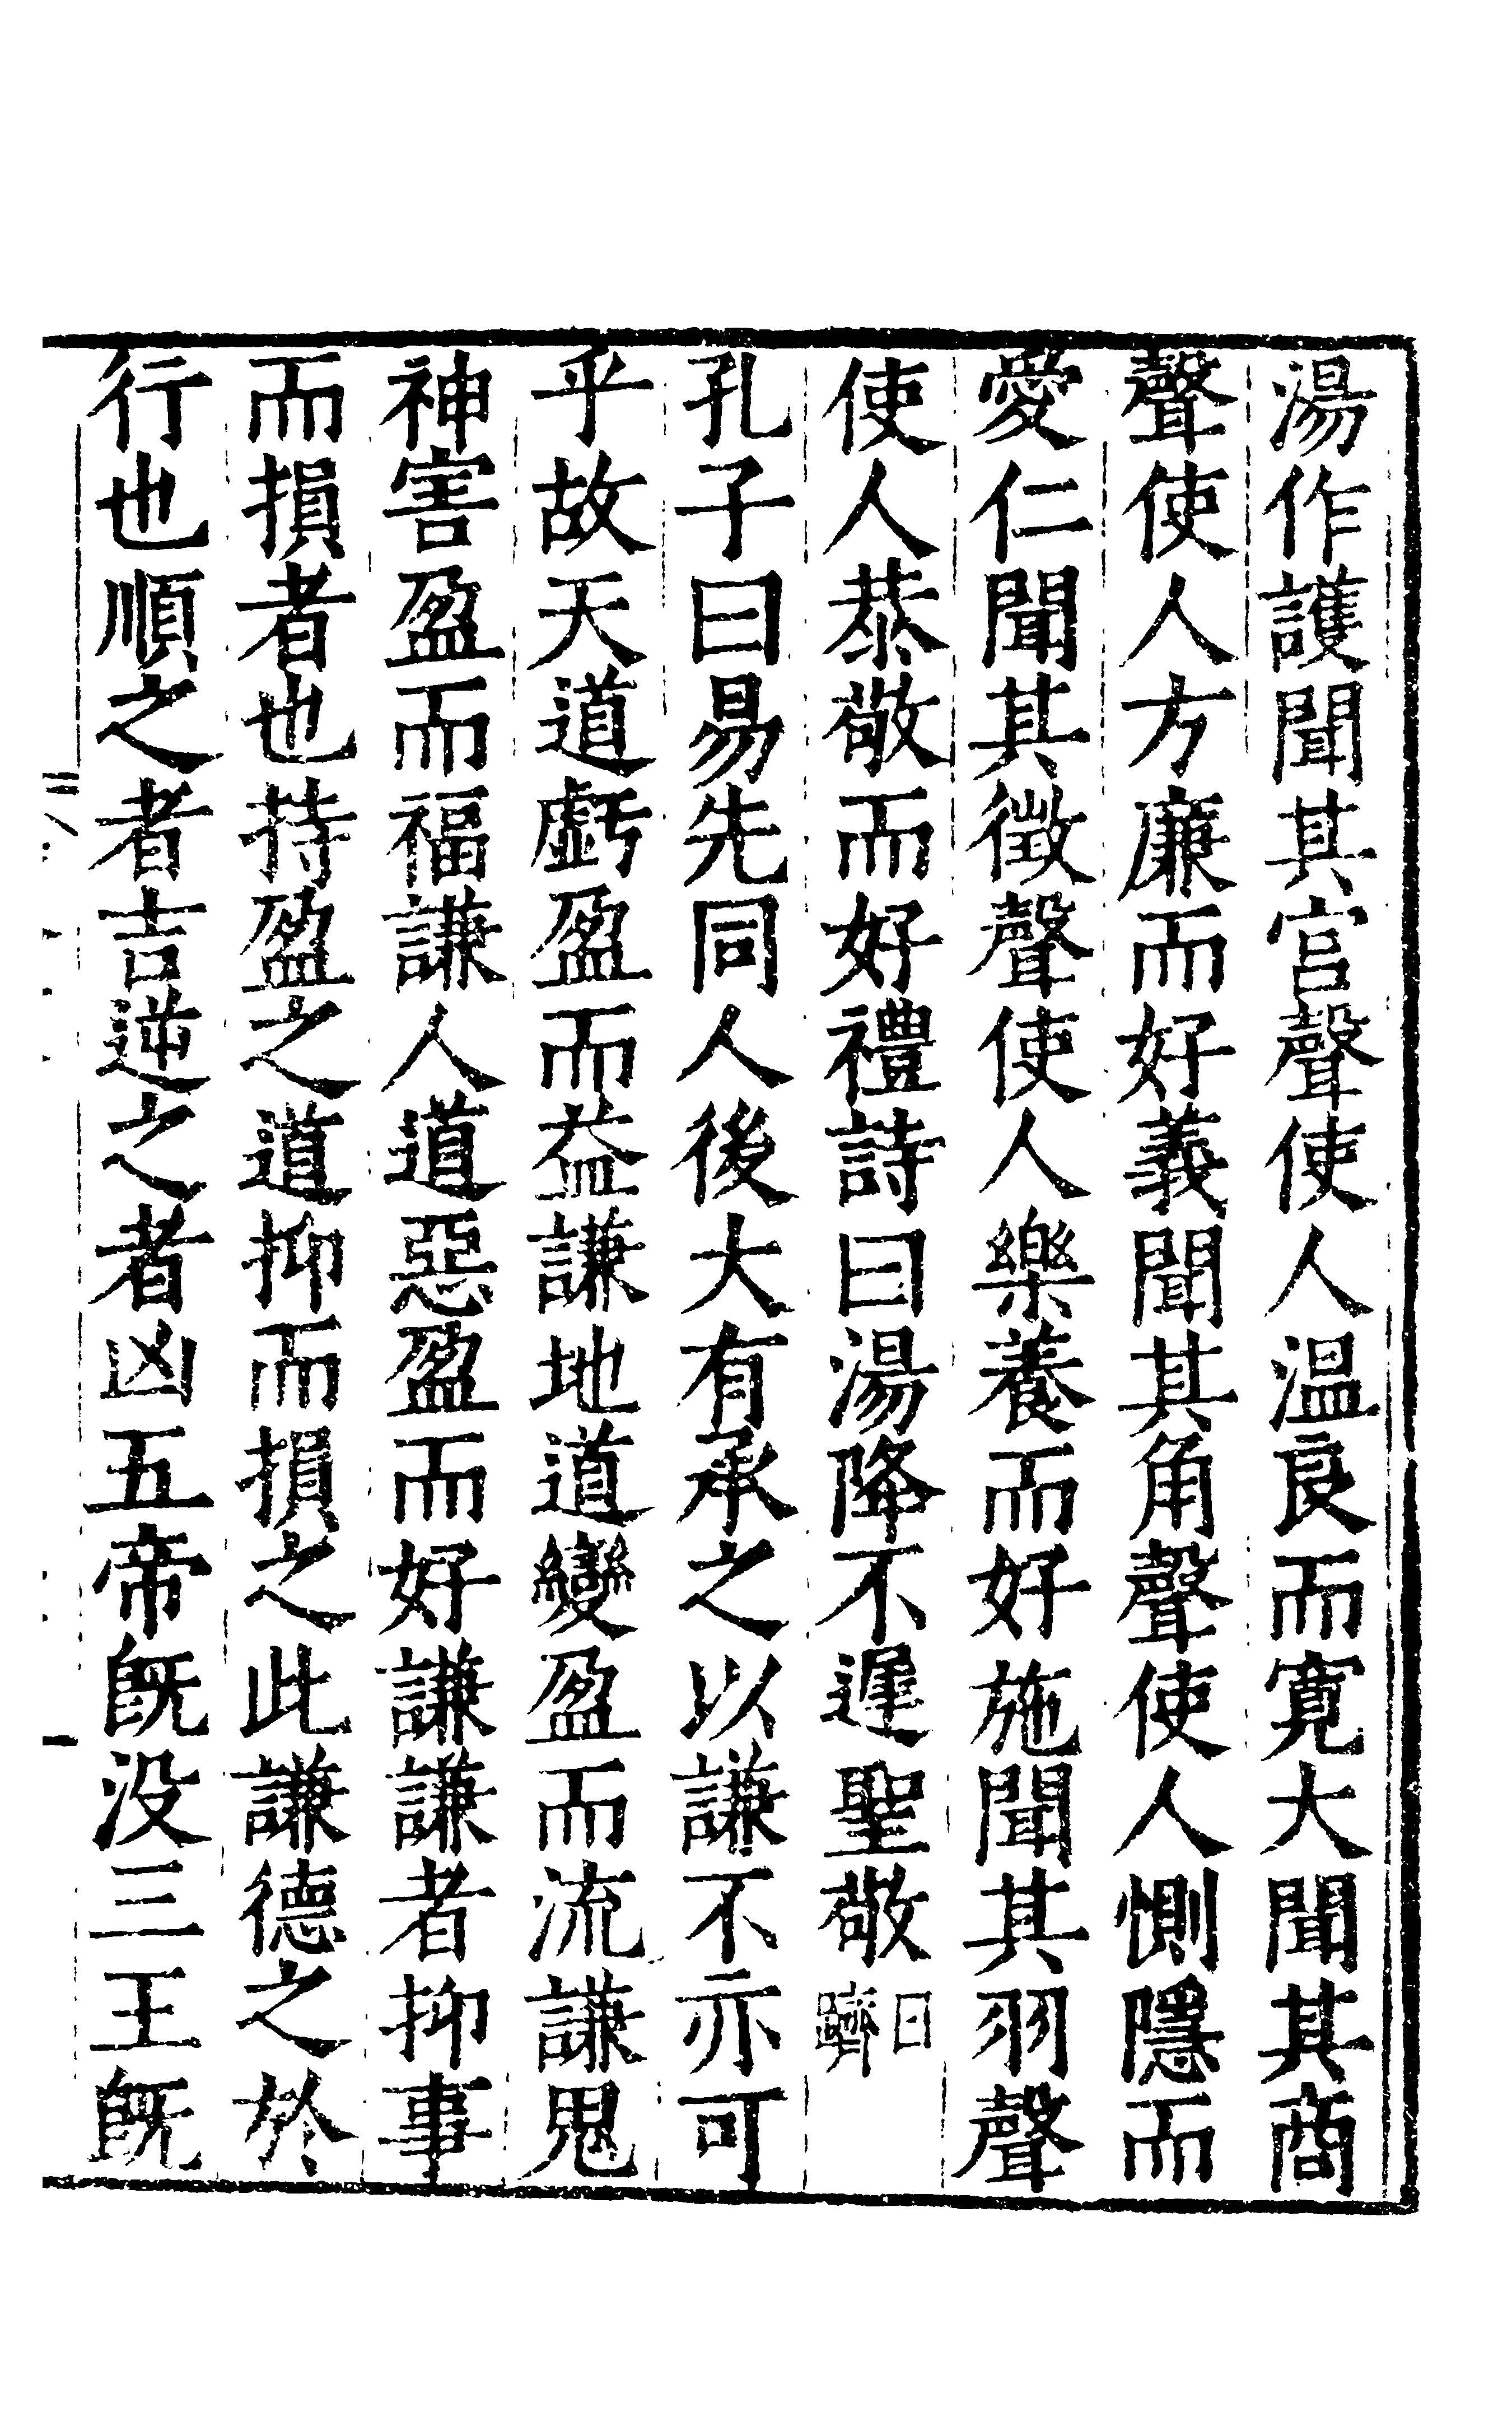 湯作護聞其宫聲使人温良而寛大聞其商
聲使人方廉而好義聞其角聲使人惻隱而
愛仁聞其徴聲使人樂養而好施聞其羽聲
使人恭敬而好禮詩曰湯降不遲聖敬日躋
孔子曰易先同人後大有承之以謙不亦可
乎故天道虧盈而益謙地道變盈而流謙鬼
神害盈而福謙人道惡盈而好謙謙者抑事
而損者也持盈之道抑而損之此謙德之於
行也順之者吉逆之者凶五帝既没三王既